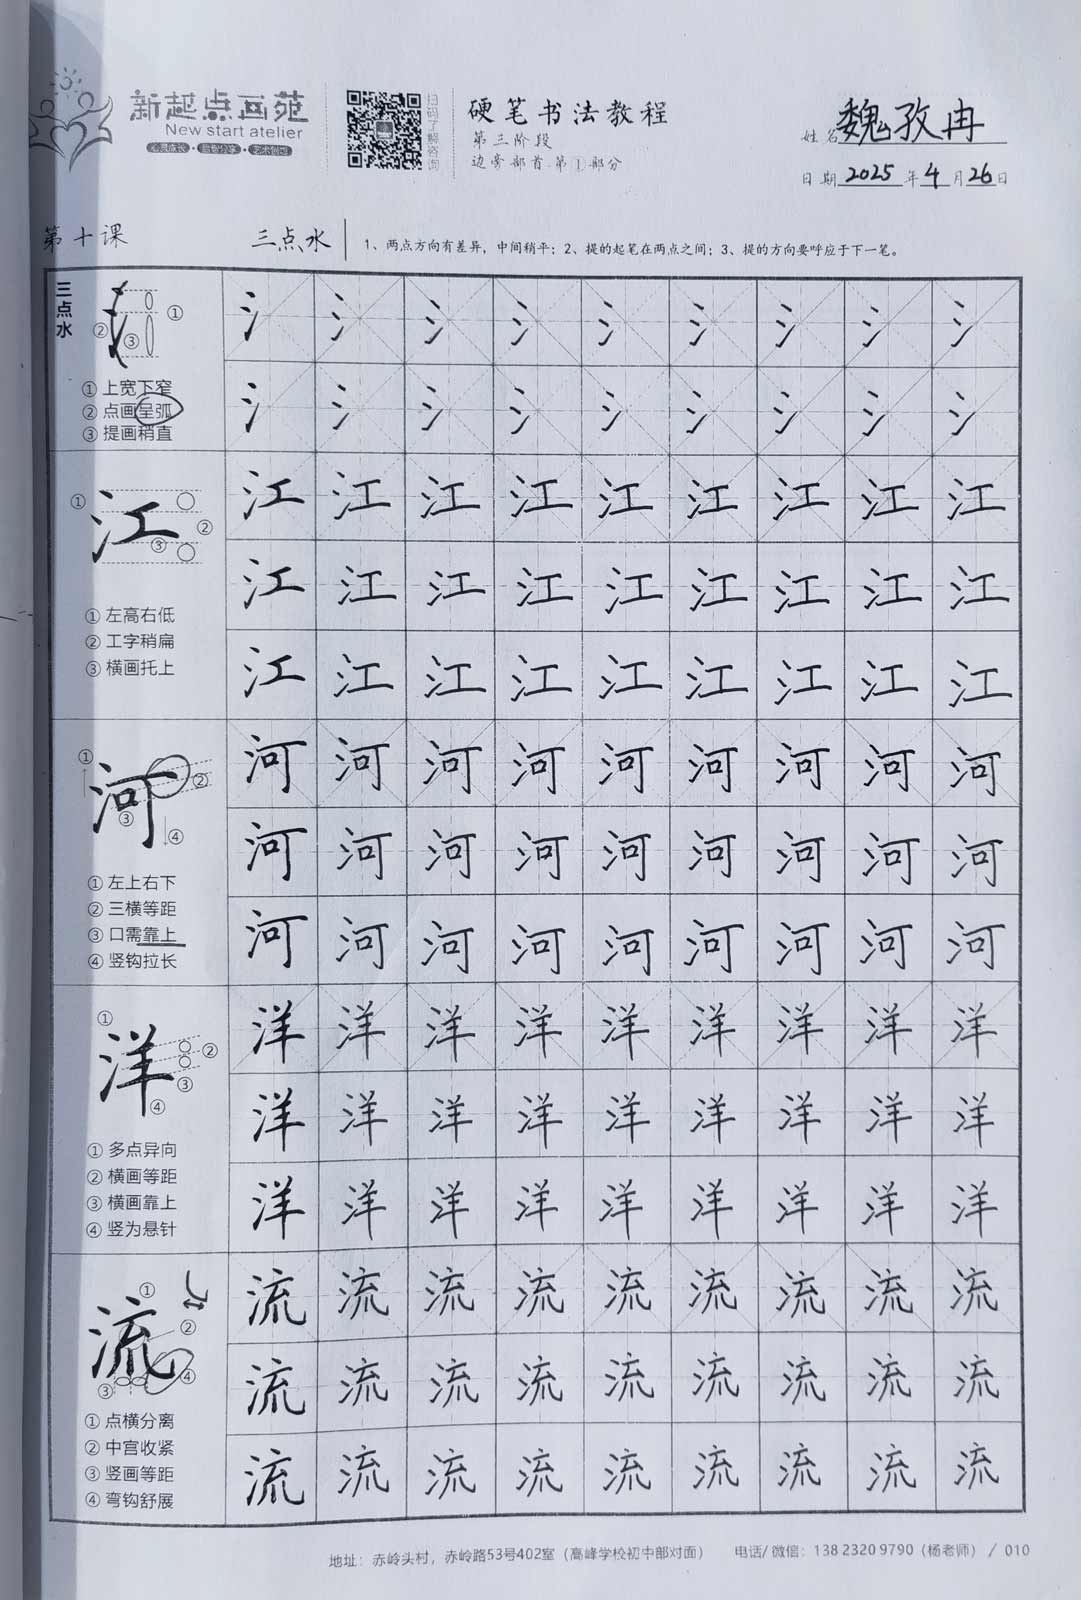 新起点画苑
New start atelier
心灵成长·启智分享·艺术创造
扫码了解咨询
硬笔书法教程
第三阶段
边旁部首·第①部分
姓名 魏孜冉
日期 2025 年 4 月 26 日
第十课 三点水
1、两点方向有差异，中间稍平；2、提的起笔在两点之间；3、提的方向要呼应于下一笔。
三点水
① ② ③
① 上宽下窄
② 点画呈弧
③ 提画稍直
氵 氵 氵 氵 氵 氵 氵 氵 氵
氵 氵 氵 氵 氵 氵 氵 氵 氵
江
① ② ③
① 左高右低
② 工字稍扁
③ 横画托上
江 江 江 江 江 江 江 江 江
江 江 江 江 江 江 江 江 江
江 江 江 江 江 江 江 江 江
河
① ② ③ ④
① 左上右下
② 三横等距
③ 口需靠上
④ 竖钩拉长
河 河 河 河 河 河 河 河 河
河 河 河 河 河 河 河 河 河
河 河 河 河 河 河 河 河 河
洋
① ② ③ ④
① 多点异向
② 横画等距
③ 横画靠上
④ 竖为悬针
洋 洋 洋 洋 洋 洋 洋 洋 洋
洋 洋 洋 洋 洋 洋 洋 洋 洋
洋 洋 洋 洋 洋 洋 洋 洋 洋
流
① ② ③ ④
① 点横分离
② 中宫收紧
③ 竖画等距
④ 弯钩舒展
流 流 流 流 流 流 流 流 流
流 流 流 流 流 流 流 流 流
流 流 流 流 流 流 流 流 流
地址：赤岭头村，赤岭路53号402室（高峰学校初中部对面） 电话/微信：138 2320 9790（杨老师） / 010